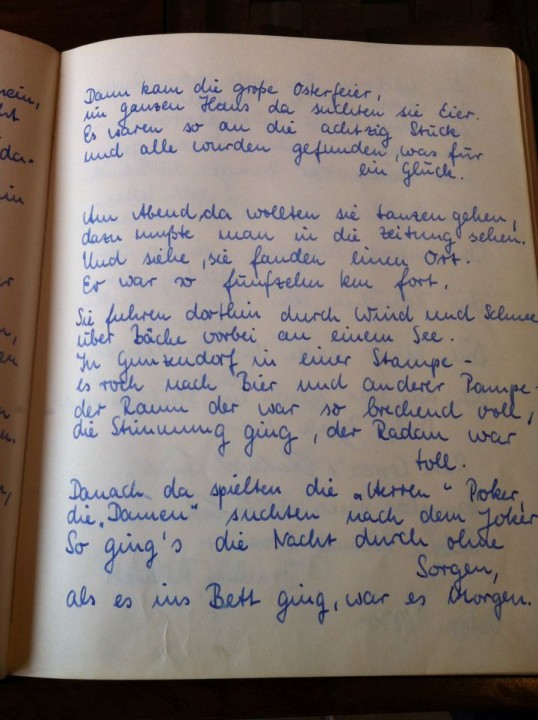 nein,
da-
in
Dann kam die große Osterfeier,
im ganzen Haus da suchten sie Eier.
Es waren so an die achtzig Stück
und alle wurden gefunden, was für
ein Glück.
Am Abend, da wollten sie tanzen gehen,
dazu mußte man in die Zeitung sehen.
Und siehe, sie fanden einen Ort.
Er war so fünfzehn km fort.
Sie fuhren dorthin durch Wind und Schnee
über Bäche vorbei an einem See.
In Gunzendorf in einer Stampe -
es roch nach Bier und anderer Pampe -
der Raum der war so brechend voll,
die Stimmung ging, der Radau war
toll.
Danach da spielten die „Herren" Poker,
die „Damen" suchten nach dem Joker
So ging's die Nacht durch ohne
Sorgen,
als es ins Bett ging, war es Morgen.